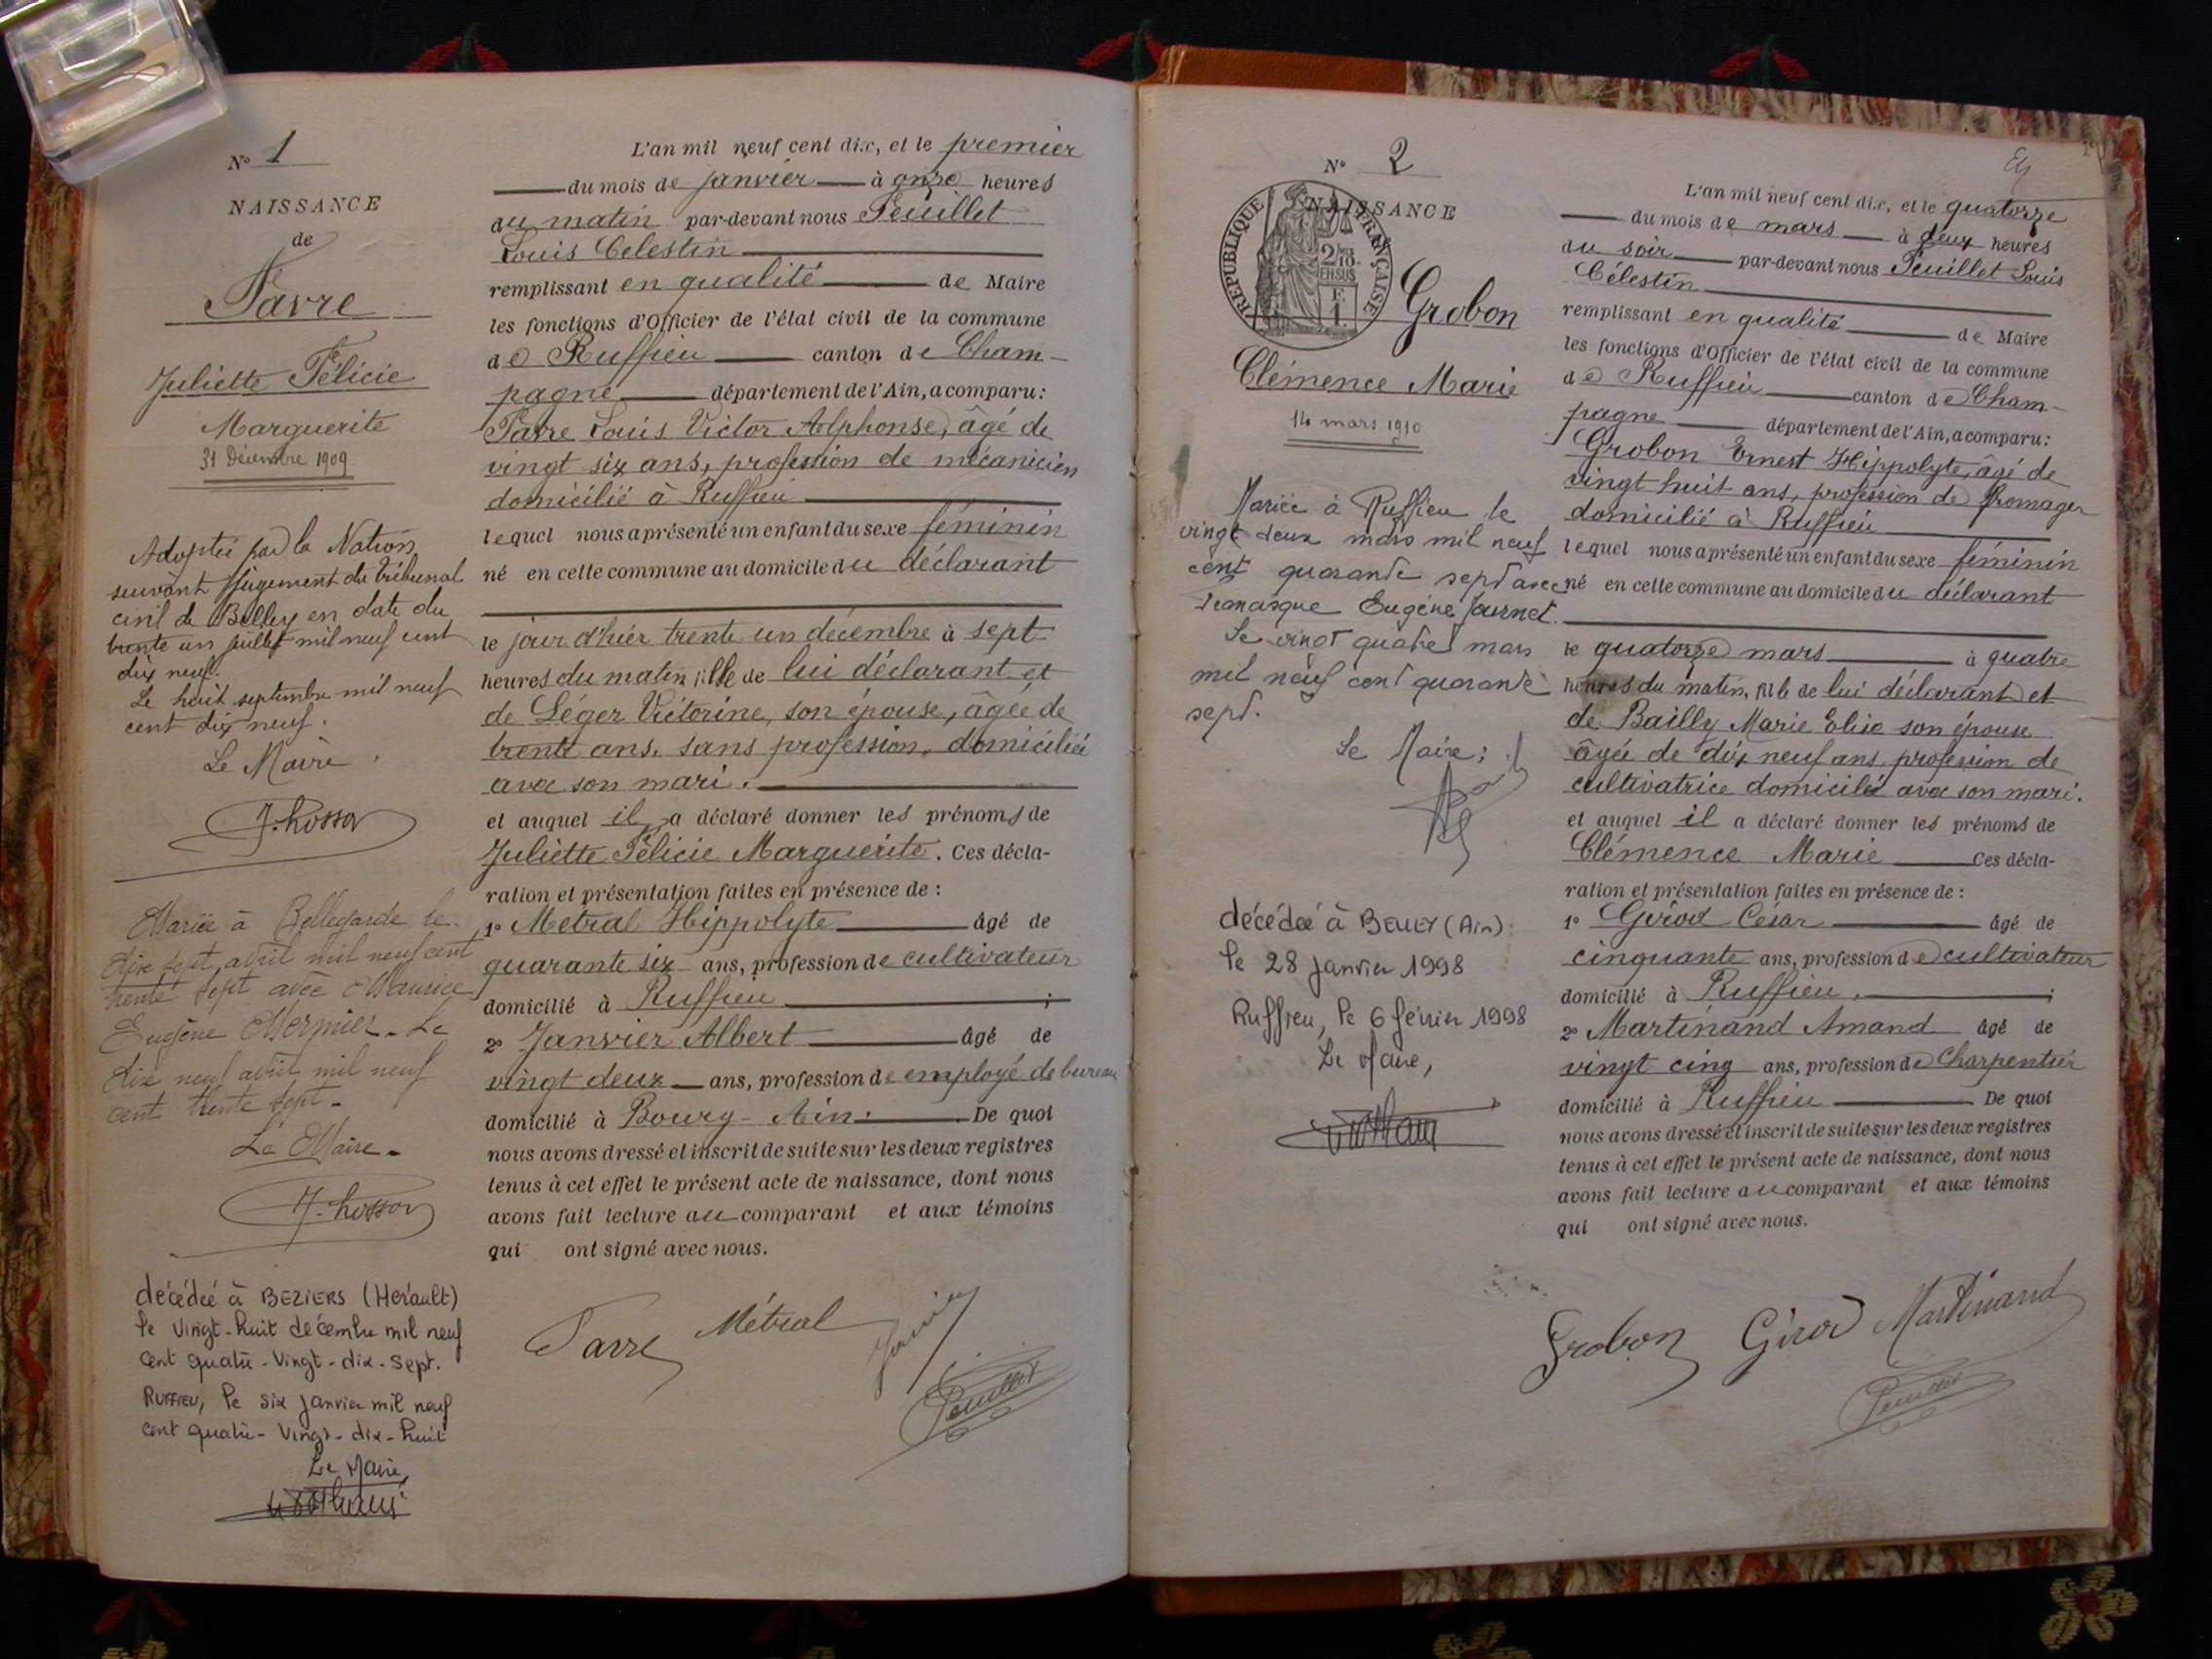 N° 1
NAISSANCE
de
Favre
Juliette Félicie
Marguerite
31 Décembre 1909
Adoptée par la Nation
suivant jugement du tribunal
civil de Belley en date du
trente un juillet mil neuf cent
dix neuf.
Le huit septembre mil neuf
cent dix neuf.
Le Maire
Mariée à Bellegarde le
dix sept avril mil neuf cent
trente sept avec Maurice
Eugène Mermier. Le
dix neuf avril mil neuf
cent trente sept.
Le Maire.
décédée à BEZIERS (Herault)
le vingt-huit décembre mil neuf
cent quatre-vingt-dix-sept.
RUFFIEU, le six janvier mil neuf
cent quatre-vingt-dix-huit
Le Maire,
L'an mil neuf cent dix, et le premier
du mois de janvier à onze heures
du matin par-devant nous Feuillet
Louis Célestin
remplissant en qualité de Maire
les fonctions d'Officier de l'état civil de la commune
de Ruffieu canton de Cham-
pagne département de l'Ain, a comparu:
Favre Louis Victor Alphonse, âgé de
vingt six ans, profession de mécanicien
domicilié à Ruffieu
lequel nous a présenté un enfant du sexe féminin
né en cette commune au domicile du déclarant
le jour d'hier trente un décembre à sept
heures du matin, fille de lui déclarant et
de Léger Victorine, son épouse, âgée de
trente ans, sans profession, domiciliée
avec son mari.
et auquel il a déclaré donner les prénoms de
Juliette Félicie Marguerite. Ces décla-
ration et présentation faites en présence de :
1° Métral Hippolyte âgé de
quarante six ans, profession de cultivateur
domicilié à Ruffieu ;
2° Janvier Albert âgé de
vingt deux ans, profession de employé de bureau
domicilié à Bourg-Ain. De quoi
nous avons dressé et inscrit de suite sur les deux registres
tenus à cet effet le présent acte de naissance, dont nous
avons fait lecture au comparant et aux témoins
qui ont signé avec nous.
Favre Métral Janvier
Feuillet
N° 2
NAISSANCE
RÉPUBLIQUE FRANÇAISE
2/10
EN SUS
F.
1.
Grobon
Clémence Marie
14 mars 1910
Mariée à Ruffieu le
vingt deux mars mil neuf
cent quarante sept avec
Eugène Journet.
Le vingt quatre mars
mil neuf cent quarante
sept.
Le Maire :
décédée à BELLEY (Ain)
le 28 janvier 1998
Ruffieu, le 6 février 1998
Le Maire,
L'an mil neuf cent dix, et le quatorze
du mois de mars à deux heures
du soir par-devant nous Feuillet Louis
Célestin
remplissant en qualité de Maire
les fonctions d'Officier de l'état civil de la commune
de Ruffieu canton de Cham-
pagne département de l'Ain, a comparu:
Grobon Ernest Hippolyte, âgé de
vingt huit ans, profession de fromager
domicilié à Ruffieu
lequel nous a présenté un enfant du sexe féminin
né en cette commune au domicile du déclarant
le quatorze mars à quatre
heures du matin, fille de lui déclarant et
de Bailly Marie Elise son épouse
âgée de dix neuf ans, profession de
cultivatrice domicilée avec son mari.
et auquel il a déclaré donner les prénoms de
Clémence Marie Ces décla-
ration et présentation faites en présence de :
1° Girod César âgé de
cinquante ans, profession de cultivateur
domicilié à Ruffieu. ;
2° Martinand Amand âgé de
vingt cinq ans, profession de Charpentier
domicilié à Ruffieu De quoi
nous avons dressé et inscrit de suite sur les deux registres
tenus à cet effet le présent acte de naissance, dont nous
avons fait lecture au comparant et aux témoins
qui ont signé avec nous.
Grobon Girod Martinand
Feuillet